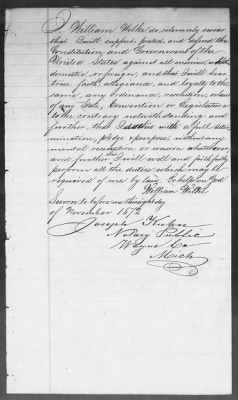 I William Wilkie do solemnly swear
that I will support, protect, and defend the
Constitution and Government of the
United States against all enemies, whether
domestic or foreign, and that I will bear
true faith, allegiance and loyalty to the
same, any ordinance, resolution or law
of any State, Convention or Legislature
to the contrary notwithstanding and
further, that I do this with a full deter-
mination, pledge & purpose, without any
mental reservation or evasion whatsoever,
and further I will well and faithfully
perform all the duties which may be
required of me by law. So help me God
William
Sworn to before me this day
of November 1872
Joseph Kuhn
Notary Public
Wayne Co
Mich